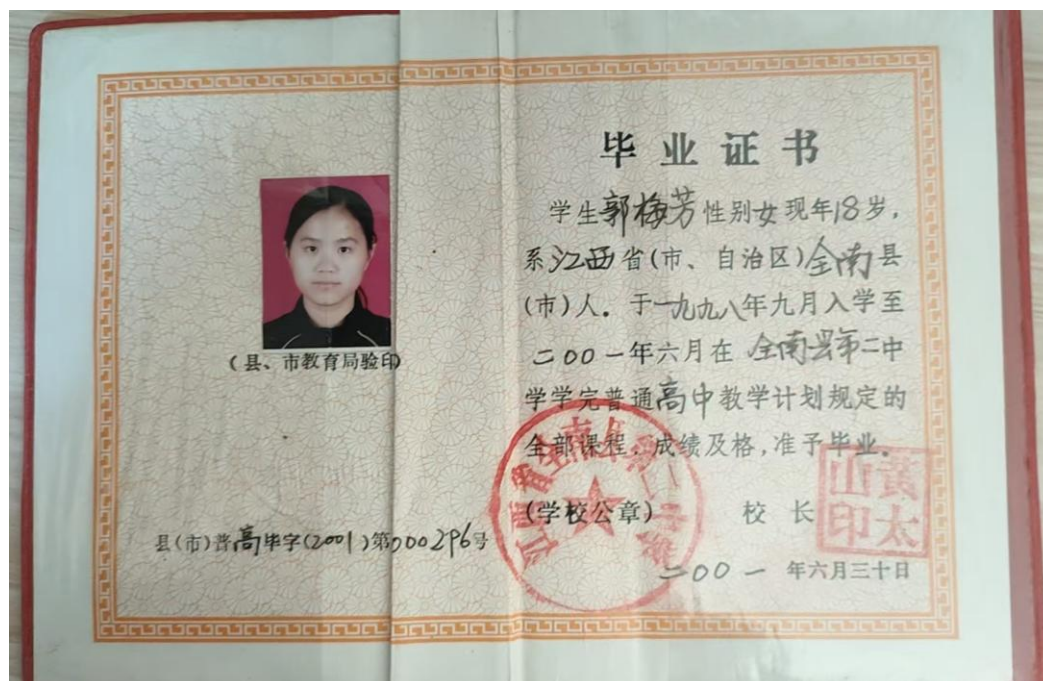 毕业证书
学生郭梅芳性别女现年18岁,
系江西省(市、自治区)全南县
(市)人。于一九九八年九月入学至
二00一年六月在全南县第二中
学学完普通高中教学计划规定的
全部课程,成绩及格,准予毕业。
(学校公章) 校长
二00一年六月三十日
(县、市教育局验印)
县(市)普高毕字(2001)第000296号
江西省全南县第二中学
黄太山印